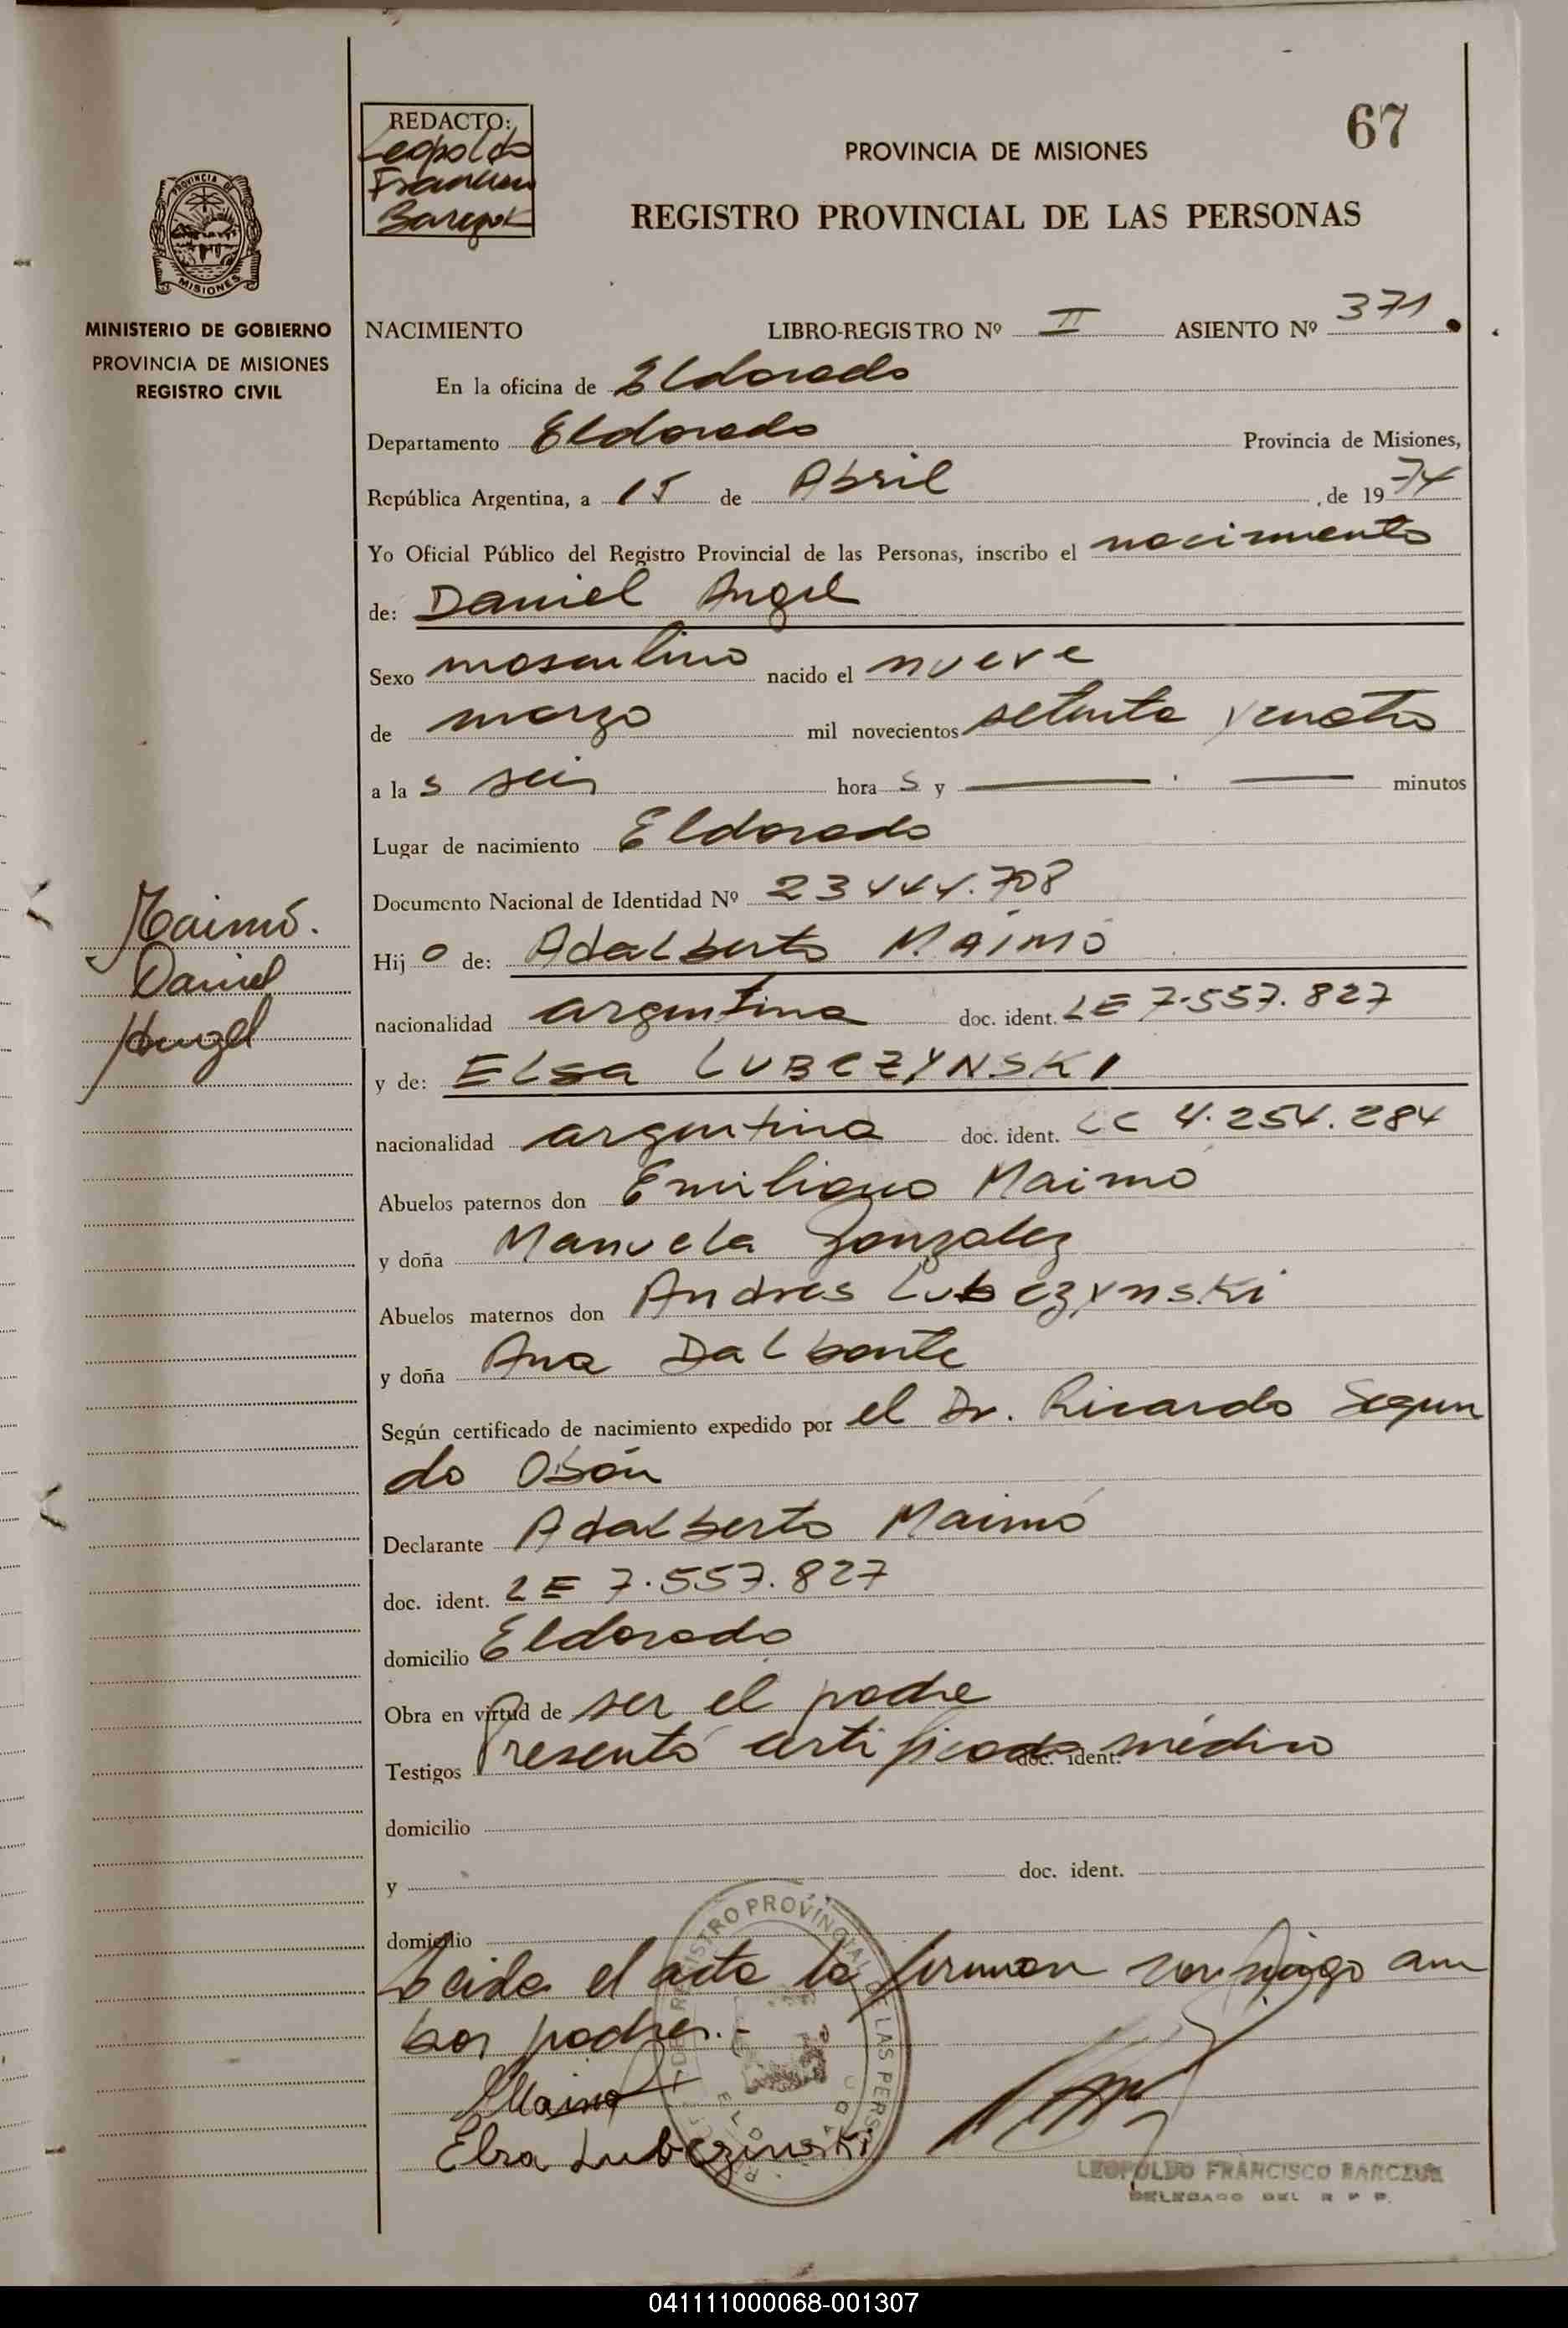 67
REDACTO:
Leopoldo
Francisco
Barczuk
PROVINCIA DE MISIONES
REGISTRO PROVINCIAL DE LAS PERSONAS
PROVINCIA DE
MISIONES
MINISTERIO DE GOBIERNO
PROVINCIA DE MISIONES
REGISTRO CIVIL
NACIMIENTO LIBRO-REGISTRO Nº II ASIENTO Nº 371.
En la oficina de Eldorado
Departamento Eldorado Provincia de Misiones,
República Argentina, a 15 de Abril , de 1974
Yo Oficial Público del Registro Provincial de las Personas, inscribo el nacimiento
de: Daniel Angel
Sexo masculino nacido el nueve
de marzo mil novecientos setenta y cuatro
a la s seis hora s y — . — minutos
Lugar de nacimiento Eldorado
Documento Nacional de Identidad Nº 23444.708
Maimó.
Daniel
Angel
Hij o de: Adalberto Maimó
nacionalidad argentina doc. ident. LE 7.557.827
y de: ELSA LUBCZYNSKI
nacionalidad argentina doc. ident. LC 4.254.284
Abuelos paternos don Emiliano Maimó
y doña Manuela Gonzalez
Abuelos maternos don Andres Lubczynski
y doña Ana Dalbonte
Según certificado de nacimiento expedido por el Dr. Ricardo Segun
do Obón
Declarante Adalberto Maimó
doc. ident. LE 7.557.827
domicilio Eldorado
Obra en virtud de ser el padre
Testigos Presentó certificado médico doc. ident.
domicilio
y doc. ident.
domicilio
Leida el acta la firman conmigo am
bos padres.-
Maimó
Elsa Lubczinski
REGISTRO PROVINCIAL DE LAS PERS
LEOPOLDO FRANCISCO BARCZUK
DELEGADO DEL R P P.
041111000068-001307